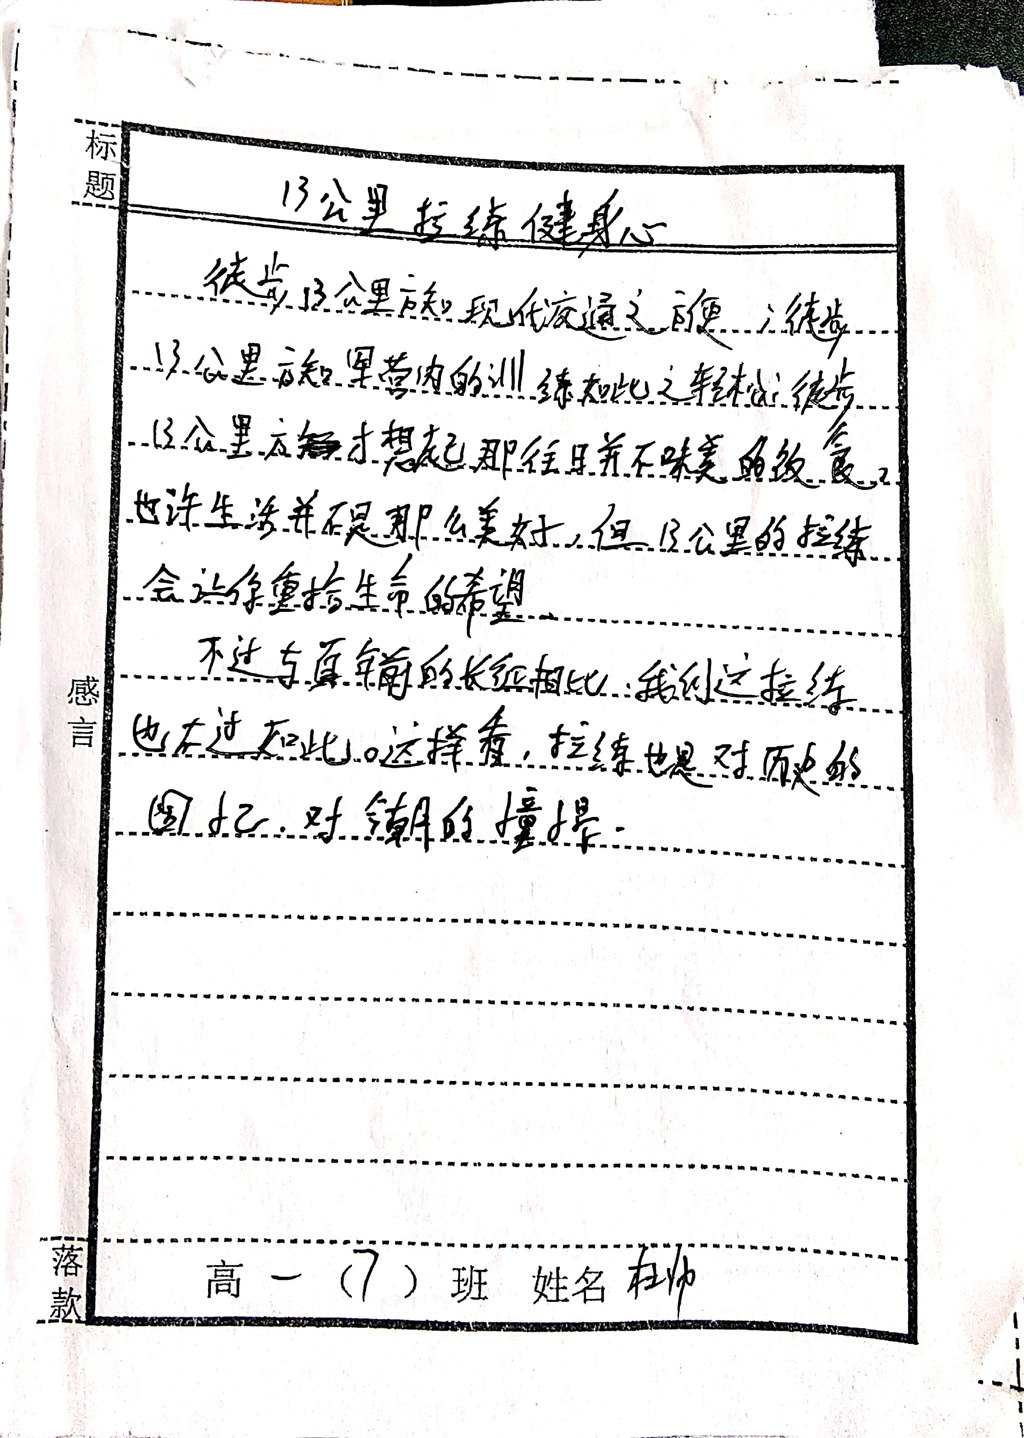 标题
13公里拉练健身心
徒步13公里方知现代交通之方便；徒步
13公里方知军营内的训练如此之轻松；徒步
13公里方才想起那往日并不味美的饭食。
也许生活并不是那么美好，但13公里的拉练
会让你重拾生命的希望。
不过与真年前的长征相比，我们这拉练
也不过如此。这样看，拉练也是对历史的
回忆，对今朝的憧憬。
感言
落款
高一（7）班 姓名 杜帅